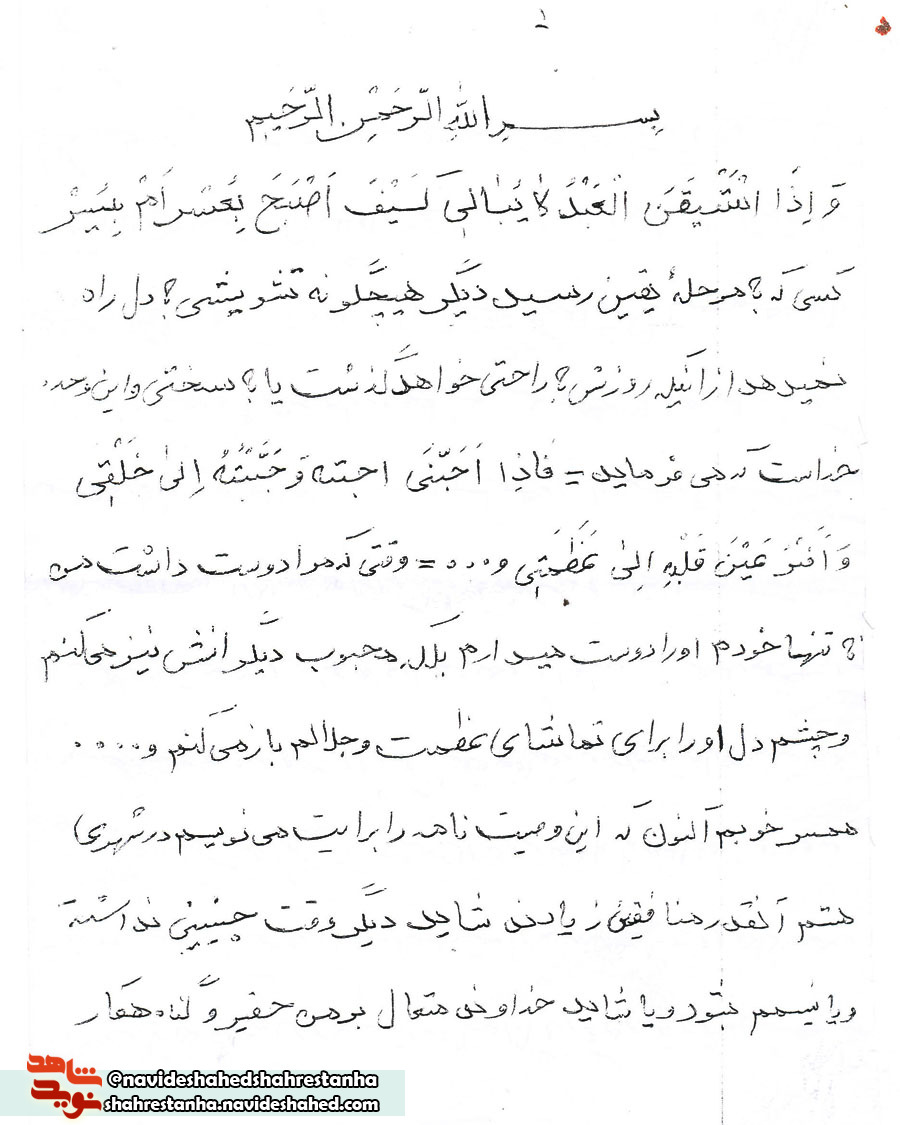 ۱
بسم الله الرَّحمٰنِ الرَّحیمِ
وَ اِذَا اسْتَیْقَنَ الْعَبْدُ لا یُبٰالی کَیْفَ اَصْبَحَ بِعُسْرٍ اَمْ بِیُسْرٍ
کسی که به مرحلهٔ یقین رسید دیگر هیچگونه تشویشی به دل راه
نمیدهد از اینکه روزش به راحتی خواهد گذشت یا به سختی و این وعده
خداست که می فرماید = فَاذِا اَحَبَّنَی احبته وَ حَبَّبْتُهُ اِلیٰ خَلْقِی
وَ اَفْتَحُ عَیْنَ قَلْبِهِ اِلیٰ عَظَمَتِی و ۰۰۰ = وقتی که مرا دوست داشت من
نه تنها خودم او را دوست میدارم بلکه محبوب دیگرانش نیز می کنم
و چشم دل او را برای تماشای عظمت و جلالم باز می کنم و ۰۰۰۰
همسر خوبم اکنون که این وصیت نامه را برایت می نویسم در شهری
هستم آنقدر منافقین زیادند شاید دیگر وقت چنینی نداشته
و یا نیسم بشود و یا شاید خداوند متعال بر من حقیر و گناهکار
شاهد
نوید
©navideshahedshahrestanha
shahrestanha.navideshahed.com